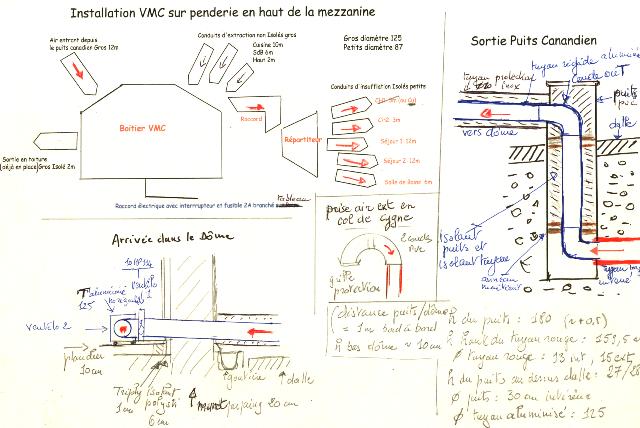 Installation VMC sur penderie en haut de la mezzanine
Air entrant depuis
le puits canadien Gros 12m
Conduits d'extraction non Isolés gros
Cuisine 10m
SdB 6m
Haut 2m
Gros diamètre 125
Petits diamètre 87
Conduits d'insufflation Isolés petits
Boitier VMC
Raccord
Répartiteur
CH2 3m
Séjour 1-12m
Séjour 2-12m
Salle de Bains 6m
Sortie en toiture
(déjà en place) Gros Isolé 2m
Raccord électrique avec interrupteur et fusible 2A branché
tableau
Sortie Puits Canandien
tuyau rigide
coude
tuyau protection
inox
puits
pvc
dalle
vers dôme
isolant
puits et
isolant tuyau
prise air est en
col de cygne
2 coudes
PVC
grille
protection
Arrivée dans le Dôme
T aluminisé
125
ventilo 2
plancher
10cm
Triply isolant
1cm
6cm
parpaing 20cm
gouttière
dalle
(distance puits/dôme
= 1m bord à bord
h bas dôme ≈ 10cm
h du puits : 180 (+0,5)
h haut du tuyau rouge : 159,5
Ø tuyau rouge : 13 int, 15 ext
h du puits au dessus dalle : 27/28
Ø puits : 30 cm intérieur
Ø tuyau aluminisé : 125